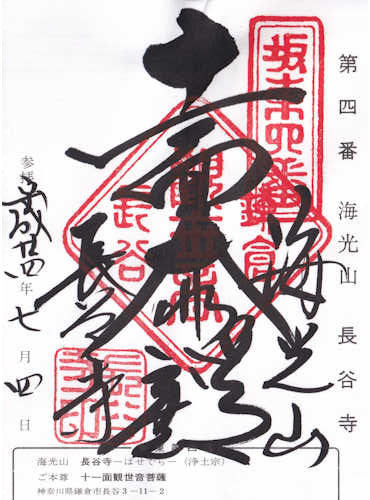 第四番 海光山 長谷寺
坂東四番
海光山
十一面大悲殿
長谷
鎌倉
長谷寺
平成廿四年七月四日
海光山 長谷寺－はせでら－（浄土宗）
ご本尊 十一面観世音菩薩
神奈川県鎌倉市長谷３－１１－２